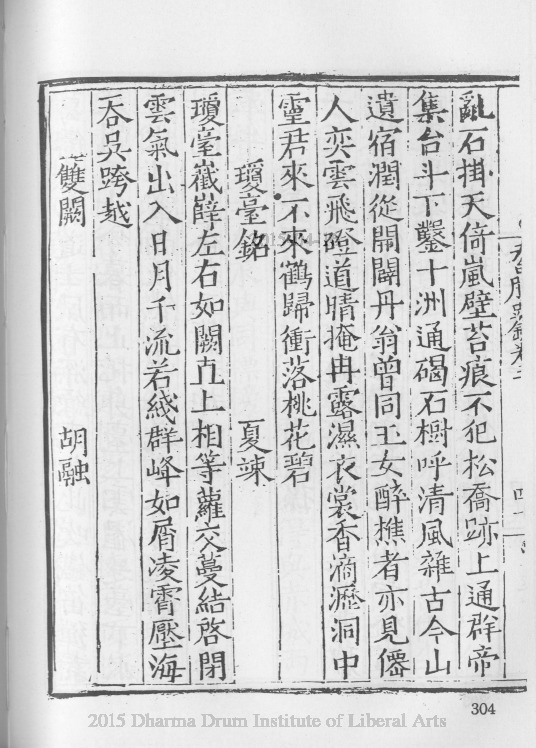 亂石掛天倚嵐壁苔痕不犯松喬跡上通群帝
集台斗下鑿十洲通碣石樹呼清風雜古今山
遺宿潤從開闢丹翁曾同玉女醉樵者亦見僊
人奕雲飛磴道晴掩冉露濕衣裳香滴瀝洞中
靈君來不來鶴歸衝落桃花碧
瓊臺銘 夏竦
瓊臺巀嶭左右如闕直上相等蘿交蔓結啓閉
雲氣出入日月千流若綫群峰如屑凌霄壓海
吞吳跨越
雙闕 胡融
304
2015 Dharma Drum Institute of Liberal Arts